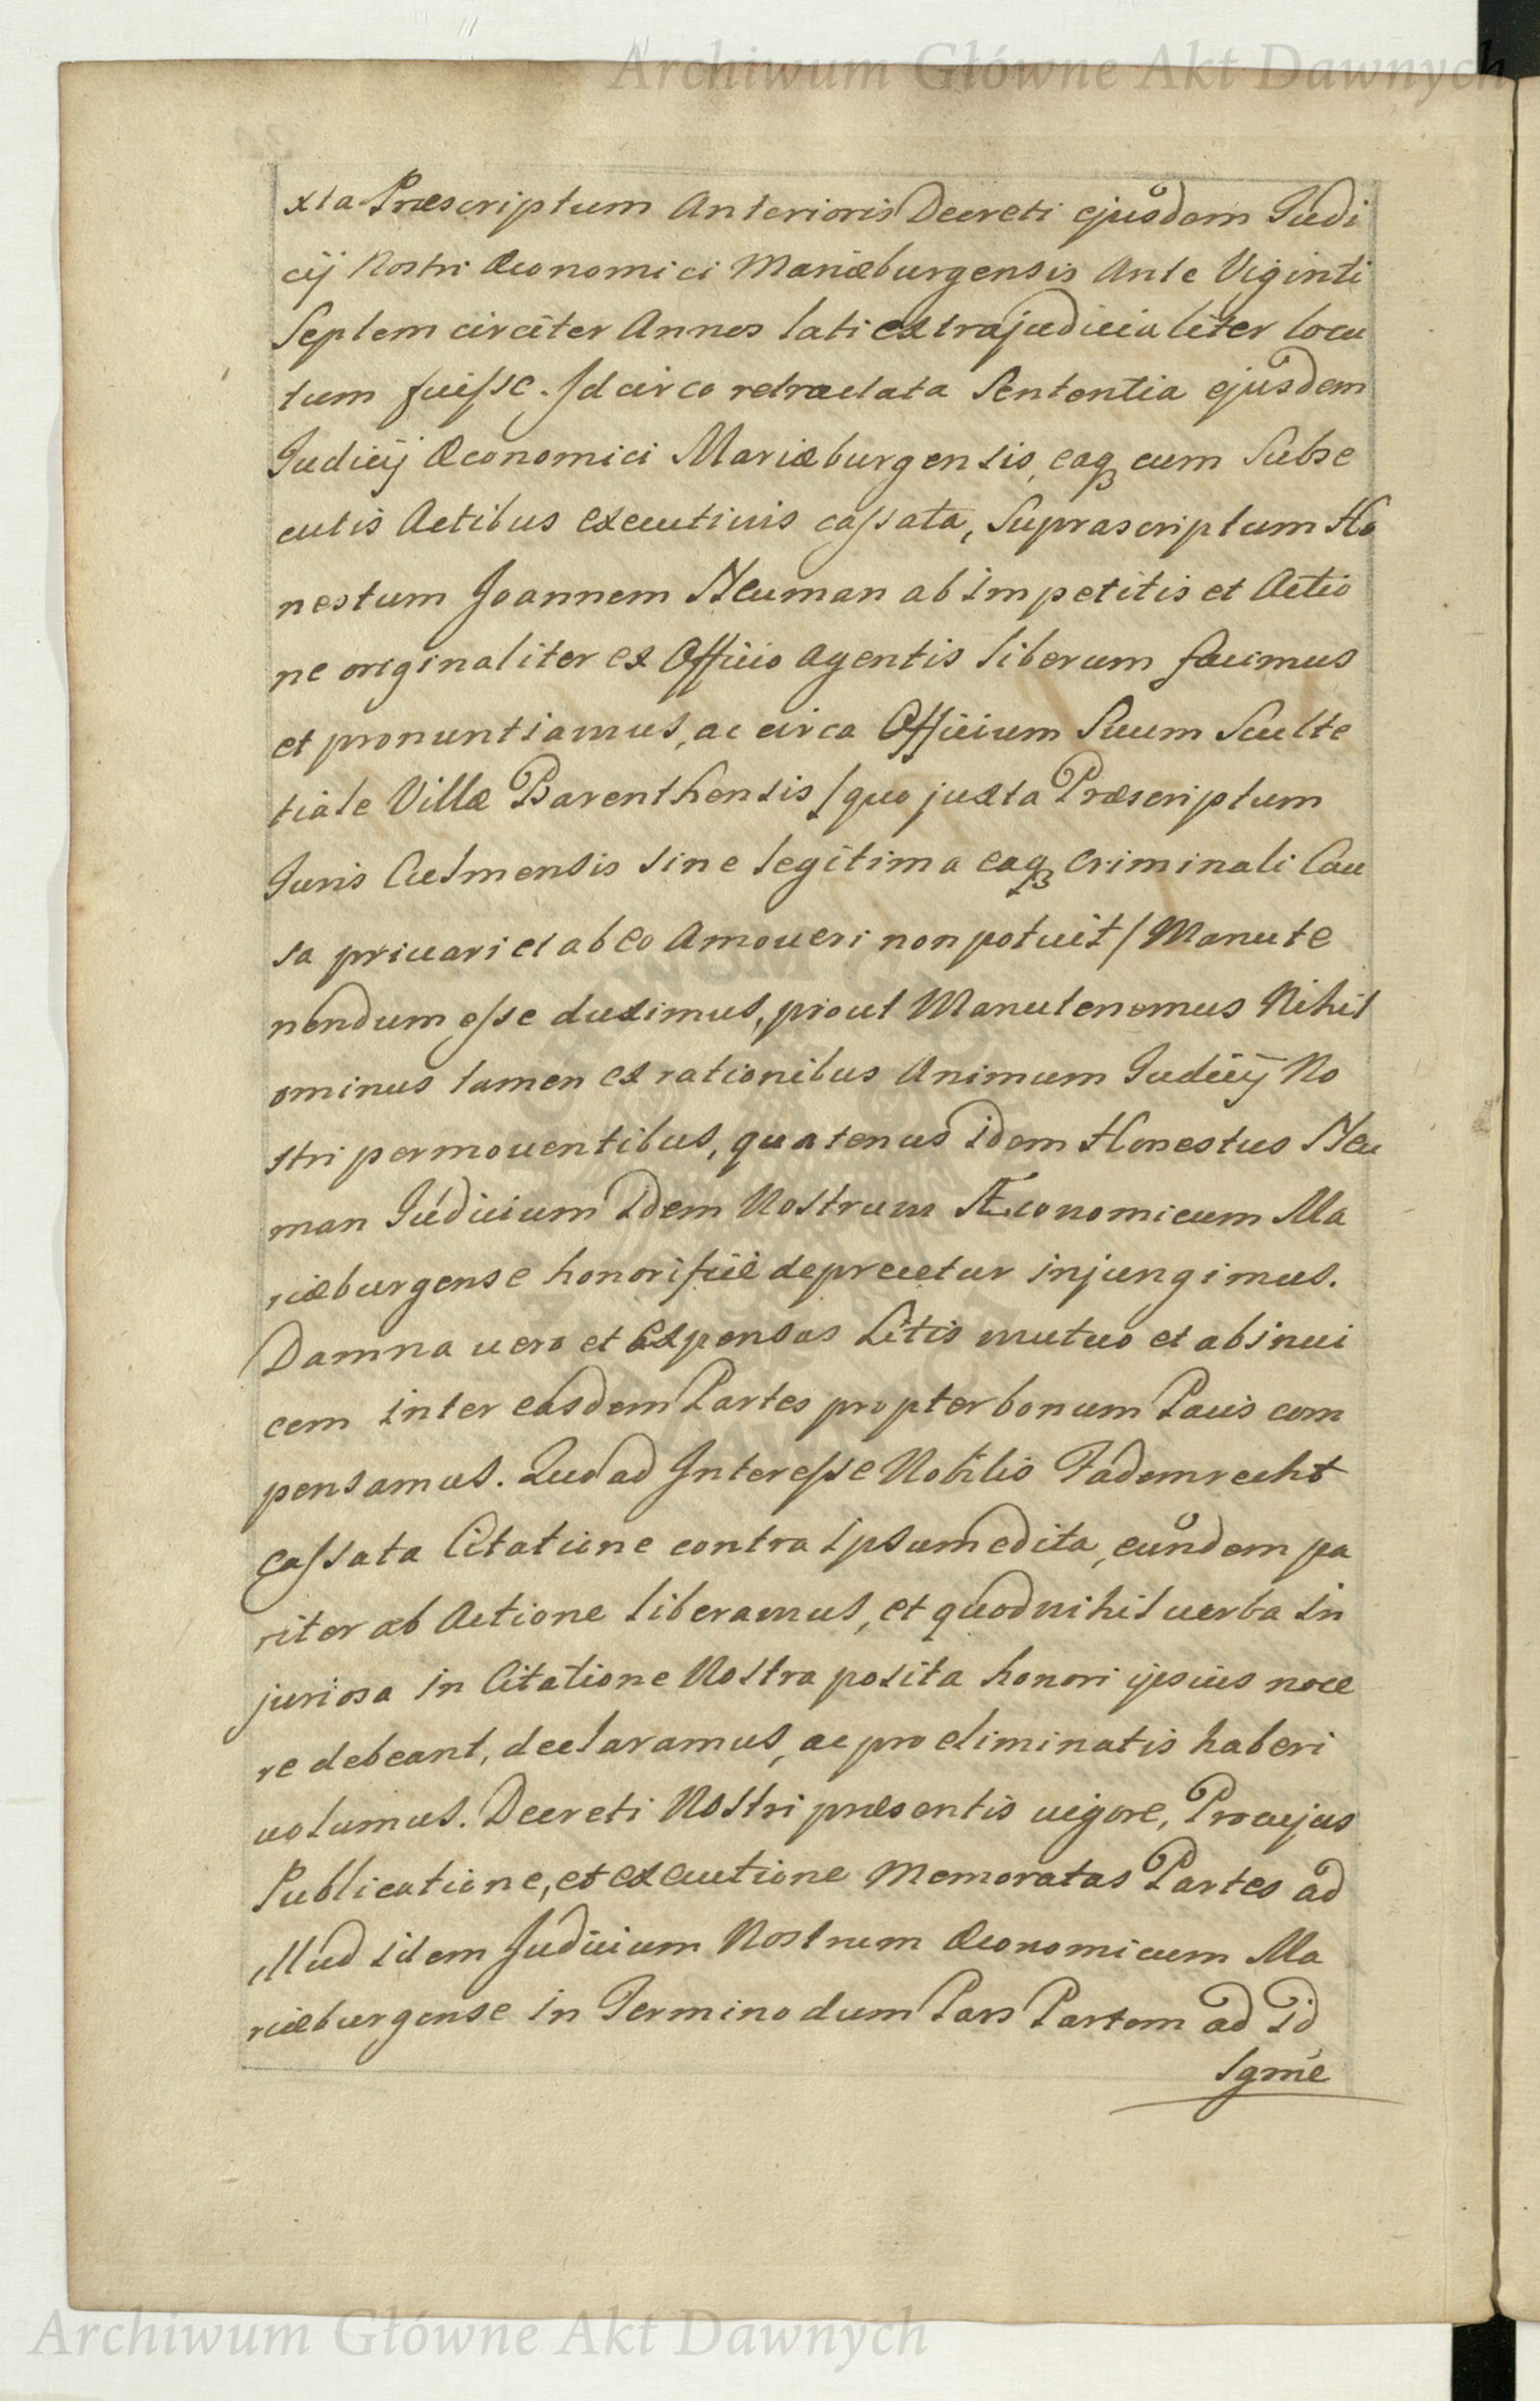 Archiwum Główne Akt Dawnych
xta Præscriptum Anterioris Decreti ejusdem Judi
cij Nostri Œconomici Mariæburgensis Ante Viginti
Septem circiter Annos lati extrajudicialiter locu
tum fuisse. Idcirco retractata Sententia ejusdem
Judicij Œconomici Mariæburgensis, eaq₃ cum Subse
cutis Actibus executiuis cassata, Suprascriptum Ho
nestum Joannem Neuman ab impetitis et Actio
ne originaliter ex Officio agentis liberum facimus
et pronuntiamus, ac circa Officium Suum Sculte
tiale Villæ Barenthensis /quo juxta Præscriptum
Juris Culmensis sine legitima eaq₃ Criminali Cau
sa priuari et ab eo Amoueri non potuit/ Manute
nendum esse duximus, prout Manutenemus Nihil
ominus tamen ex rationibus Animum Judicij No
stri permouentibus, quatenus idem Honestus Neu
man Judicium idem Nostrum Æconomicum Ma
riæburgense honorificè deprecetur injungimus.
Damna uero et Expensas Litis mutuo et abinui
cem inter easdem Partes propter bonum Pacis com
pensamus. Quo ad Interesse Nobilis Fademrecht
Cassata Citatione contra ipsum edita, eundem pa
riter ab Actione liberamus, et quod nihil uerba in
juriosa in Citatione Nostra posita honori ipsius noce
re debeant, declaramus, ac pro eliminatis haberi
uolumus. Decreti Nostri præsentis uigore, Pro cujus
Publicatione, et executione Memoratas Partes ad
illud idem Judicium Nostrum Œconomicum Ma
riæburgense in Termino dum Pars Partem ad id
Igme
Archiwum Główne Akt Dawnych